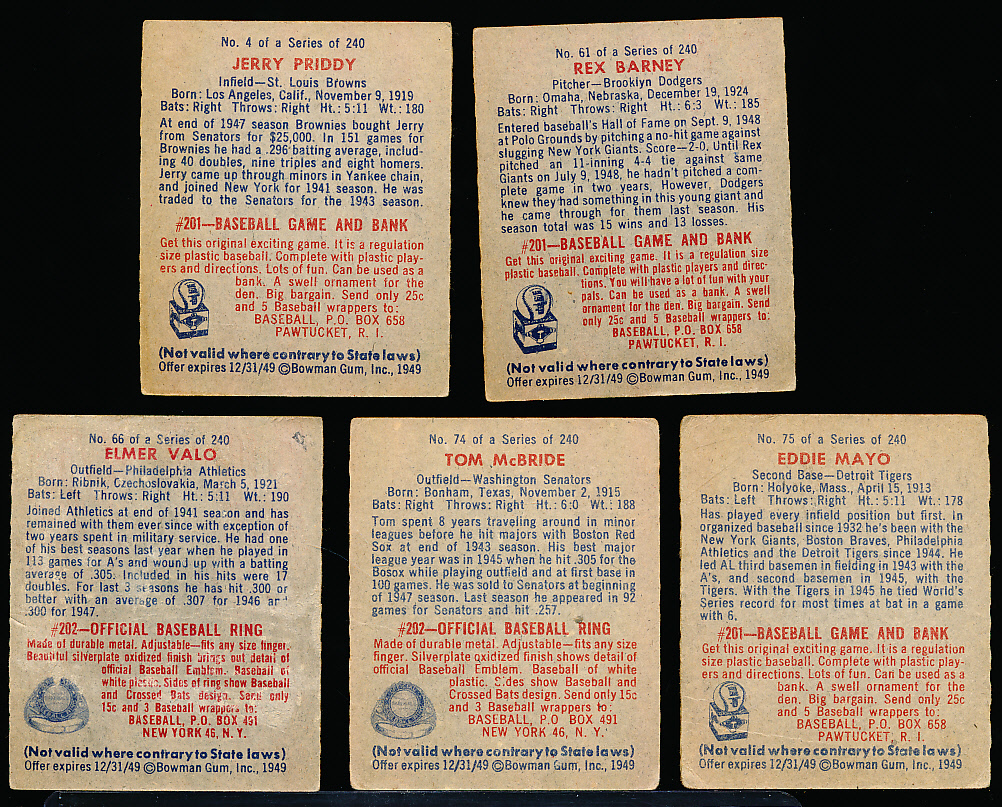 No. 4 of a Series of 240
JERRY PRIDDY
Infield—St. Louis Browns
Born: Los Angeles, Calif., November 9, 1919
Bats: Right Throws: Right Ht.: 5:11 Wt.: 180
At end of 1947 season Brownies bought Jerry
from Senators for $25,000. In 151 games for
Brownies he had a .296 batting average, includ-
ing 40 doubles, nine triples and eight homers.
Jerry came up through minors in Yankee chain,
and joined New York for 1941 season. He was
traded to the Senators for the 1943 season.
#201—BASEBALL GAME AND BANK
Get this original exciting game. It is a regulation
size plastic baseball. Complete with plastic play-
ers and directions. Lots of fun. Can be used as a
bank. A swell ornament for the
den. Big bargain. Send only 25c
and 5 Baseball wrappers to:
BASEBALL, P.O. BOX 658
PAWTUCKET, R. I.
(Not valid where contrary to State laws)
Offer expires 12/31/49 ©Bowman Gum, Inc., 1949
No. 61 of a Series of 240
REX BARNEY
Pitcher—Brooklyn Dodgers
Born: Omaha, Nebraska, December 19, 1924
Bats: Right Throws: Right Ht.: 6:3 Wt.: 185
Entered baseball's Hall of Fame on Sept. 9, 1948
at Polo Grounds by pitching a no-hit game against
slugging New York Giants. Score—2-0. Until Rex
pitched an 11-inning 4-4 tie against same
Giants on July 9, 1948, he hadn't pitched a com-
plete game in two years, However, Dodgers
knew they had something in this young giant and
he came through for them last season. His
season total was 15 wins and 13 losses.
#201—BASEBALL GAME AND BANK
Get this original exciting game. It is a regulation size
plastic baseball. Complete with plastic players and direc-
tions. You will have a lot of fun with your
pals. Can be used as a bank. A swell
ornament for the den. Big bargain. Send
only 25c and 5 Baseball wrappers to:
BASEBALL, P.O. BOX 658
PAWTUCKET, R. I.
(Not valid where contrary to State laws)
Offer expires 12/31/49 ©Bowman Gum, Inc., 1949
No. 66 of a Series of 240
ELMER VALO
Outfield—Philadelphia Athletics
Born: Ribnik, Czechoslovakia, March 5, 1921
Bats: Left Throws: Right Ht.: 5:11 Wt.: 190
Joined Athletics at end of 1941 season and has
remained with them ever since with exception of
two years spent in military service. He had one
of his best seasons last year when he played in
113 games for A's and wound up with a batting
average of .305. Included in his hits were 17
doubles. For last 3 seasons he has hit .300 or
better with an average of .307 for 1946 and
.300 for 1947.
#202—OFFICIAL BASEBALL RING
Made of durable metal. Adjustable—fits any size finger.
Beautiful silverplate oxidized finish brings out detail of
official Baseball Emblem. Baseball of
white plastic. Sides of ring show Baseball
and Crossed Bats design. Send only
15c and 3 Baseball wrappers to:
BASEBALL, P.O. BOX 491
NEW YORK 46, N. Y.
(Not valid where contrary to State laws)
Offer expires 12/31/49 ©Bowman Gum, Inc., 1949
No. 74 of a Series of 240
TOM McBRIDE
Outfield—Washington Senators
Born: Bonham, Texas, November 2, 1915
Bats: Right Throws: Right Ht.: 6:0 Wt.: 188
Tom spent 8 years traveling around in minor
leagues before he hit majors with Boston Red
Sox at end of 1943 season. His best major
league year was in 1945 when he hit .305 for the
Bosox while playing outfield and at first base in
100 games. He was sold to Senators at beginning
of 1947 season. Last season he appeared in 92
games for Senators and hit .257.
#202—OFFICIAL BASEBALL RING
Made of durable metal. Adjustable—fits any size
finger. Silverplate oxidized finish shows detail of
official Baseball Emblem. Baseball of white
plastic. Sides show Baseball and
Crossed Bats design. Send only 15c
and 3 Baseball wrappers to:
BASEBALL, P.O BOX 491
NEW YORK 46, N. Y.
(Not valid where contrary to State laws)
Offer expires 12/31/49 ©Bowman Gum, Inc., 1949
No. 75 of a Series of 240
EDDIE MAYO
Second Base—Detroit Tigers
Born: Holyoke, Mass., April 15, 1913
Bats: Left Throws: Right Ht.: 5:11 Wt.: 178
Has played every infield position but first. In
organized baseball since 1932 he's been with the
New York Giants, Boston Braves, Philadelphia
Athletics and the Detroit Tigers since 1944. He
led AL third basemen in fielding in 1943 with the
A's, and second basemen in 1945, with the
Tigers. With the Tigers in 1945 he tied World's
Series record for most times at bat in a game
with 6.
#201—BASEBALL GAME AND BANK
Get this original exciting game. It is a regulation
size plastic baseball. Complete with plastic play-
ers and directions. Lots of fun. Can be used as a
bank. A swell ornament for the
den. Big bargain. Send only 25c
and 5 Baseball wrappers to:
BASEBALL, P.O. BOX 658
PAWTUCKET, R. I.
(Not valid where contrary to State laws)
Offer expires 12/31/49 ©Bowman Gum, Inc., 1949